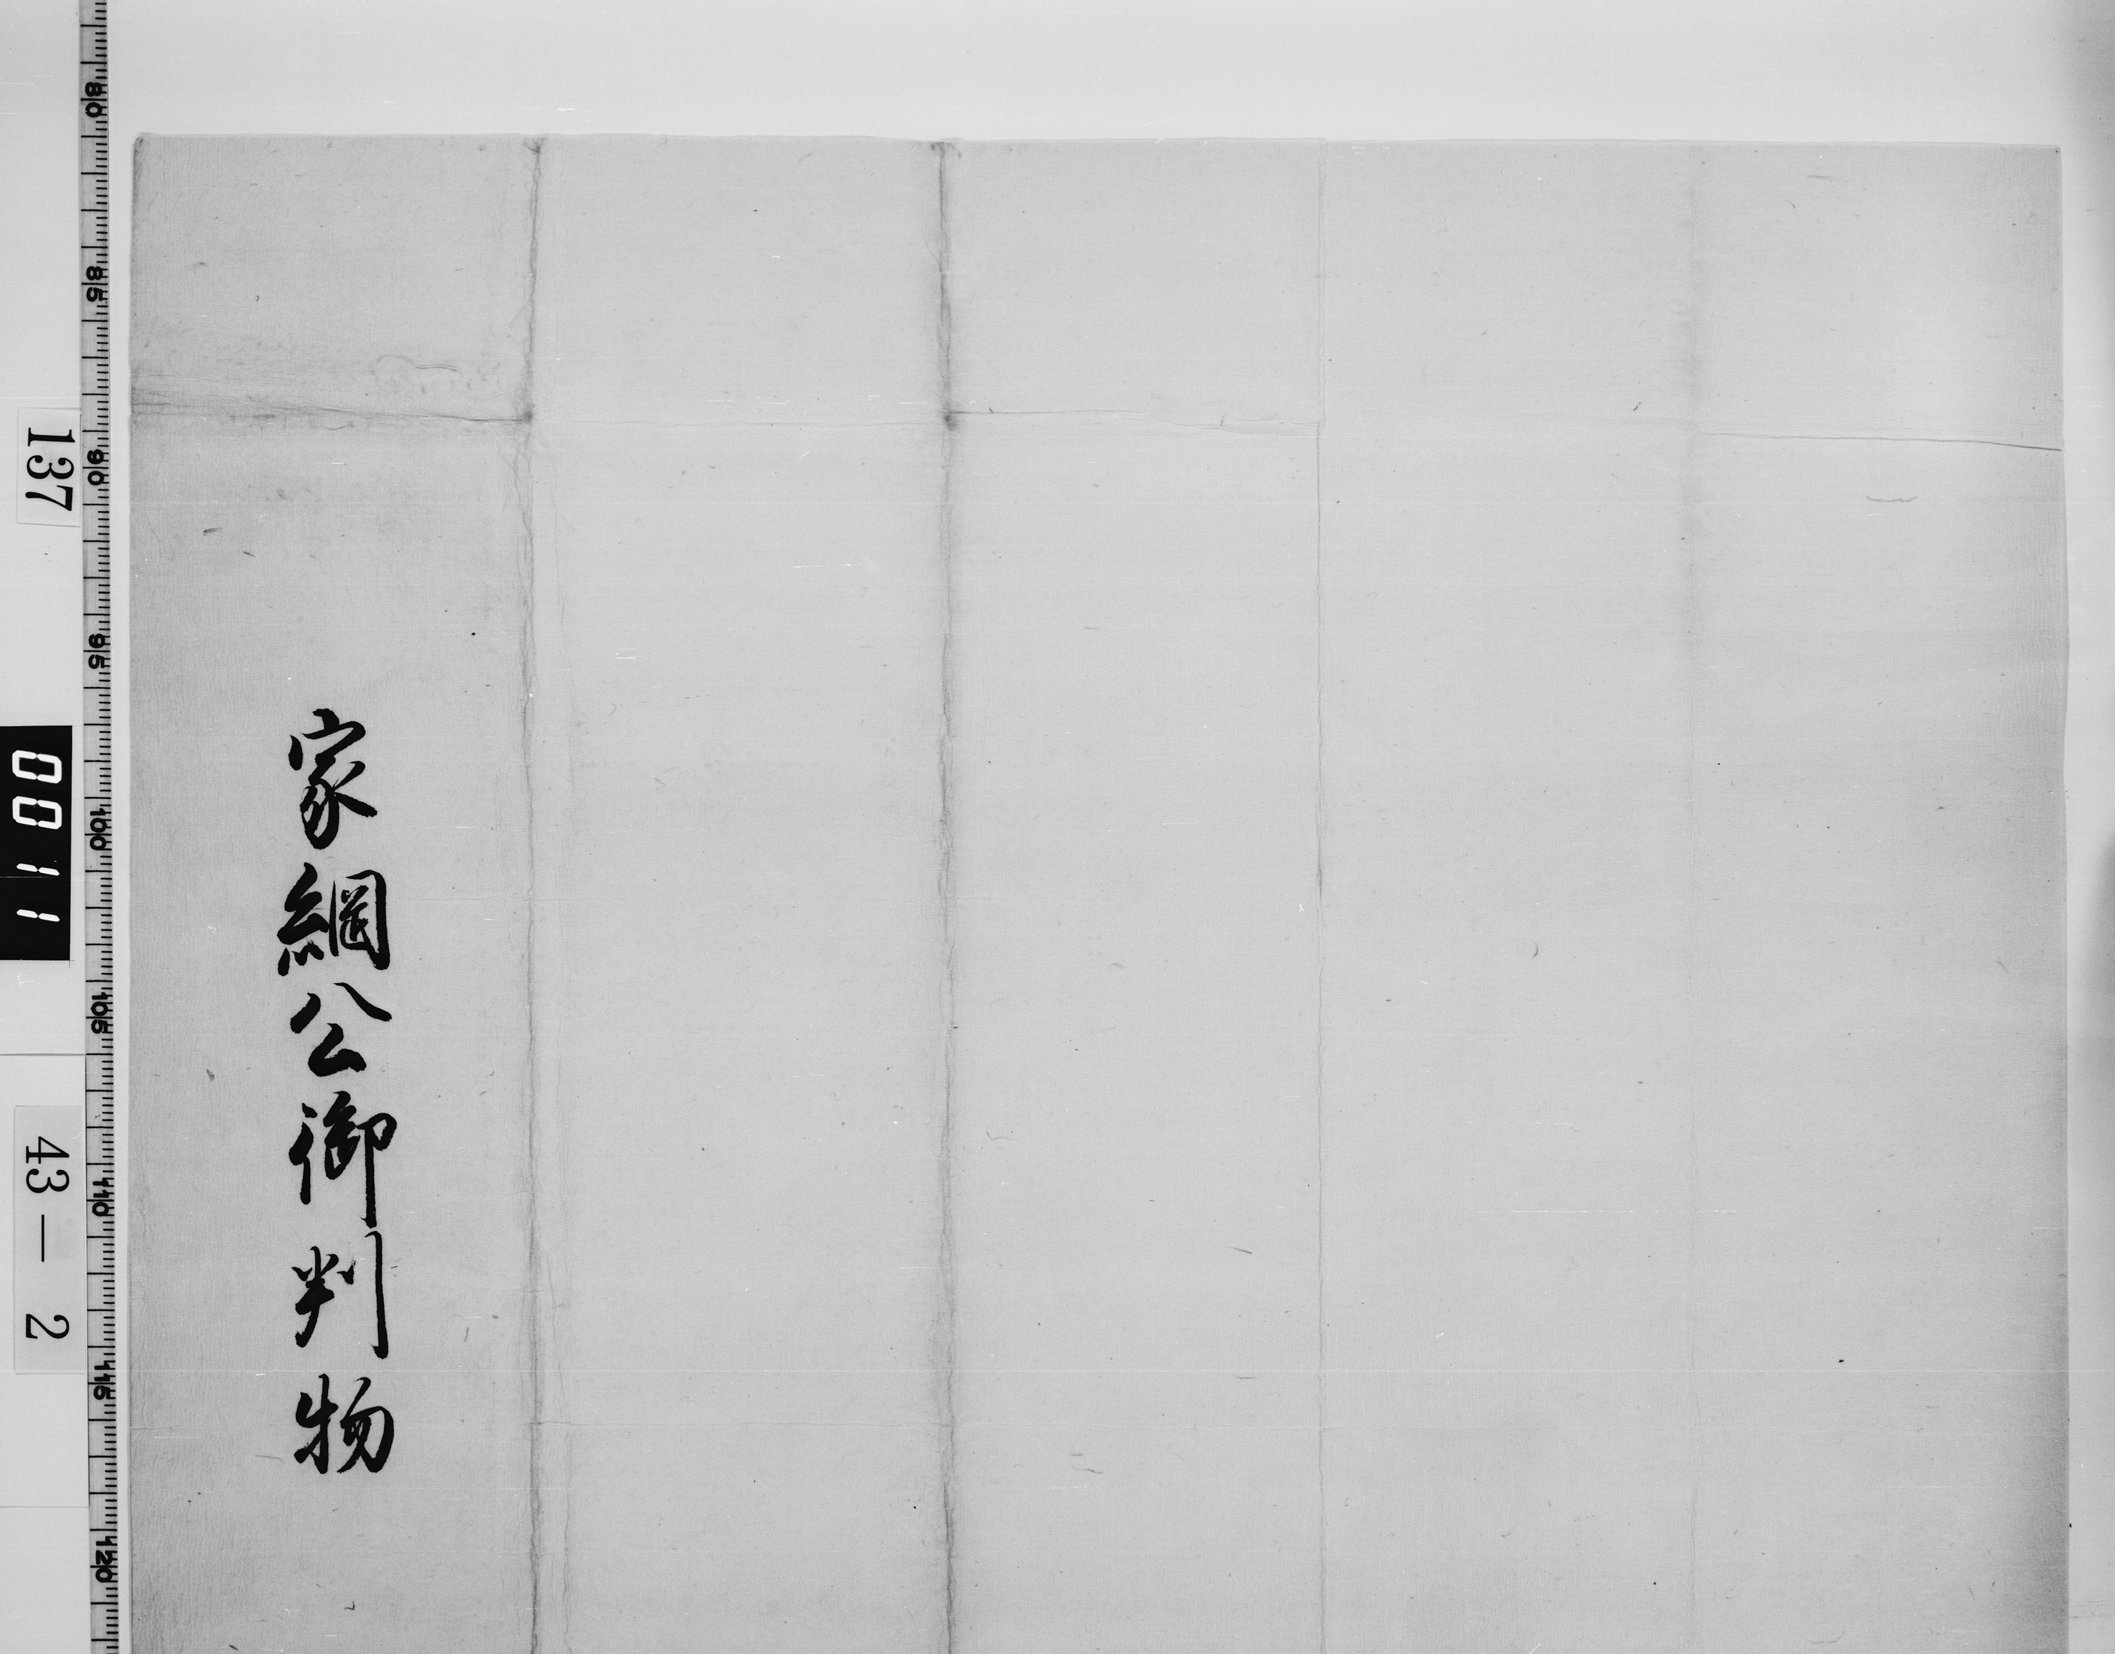 家綱公御判物
80
85
90
95
100
105
110
115
120
137
0011
43－2